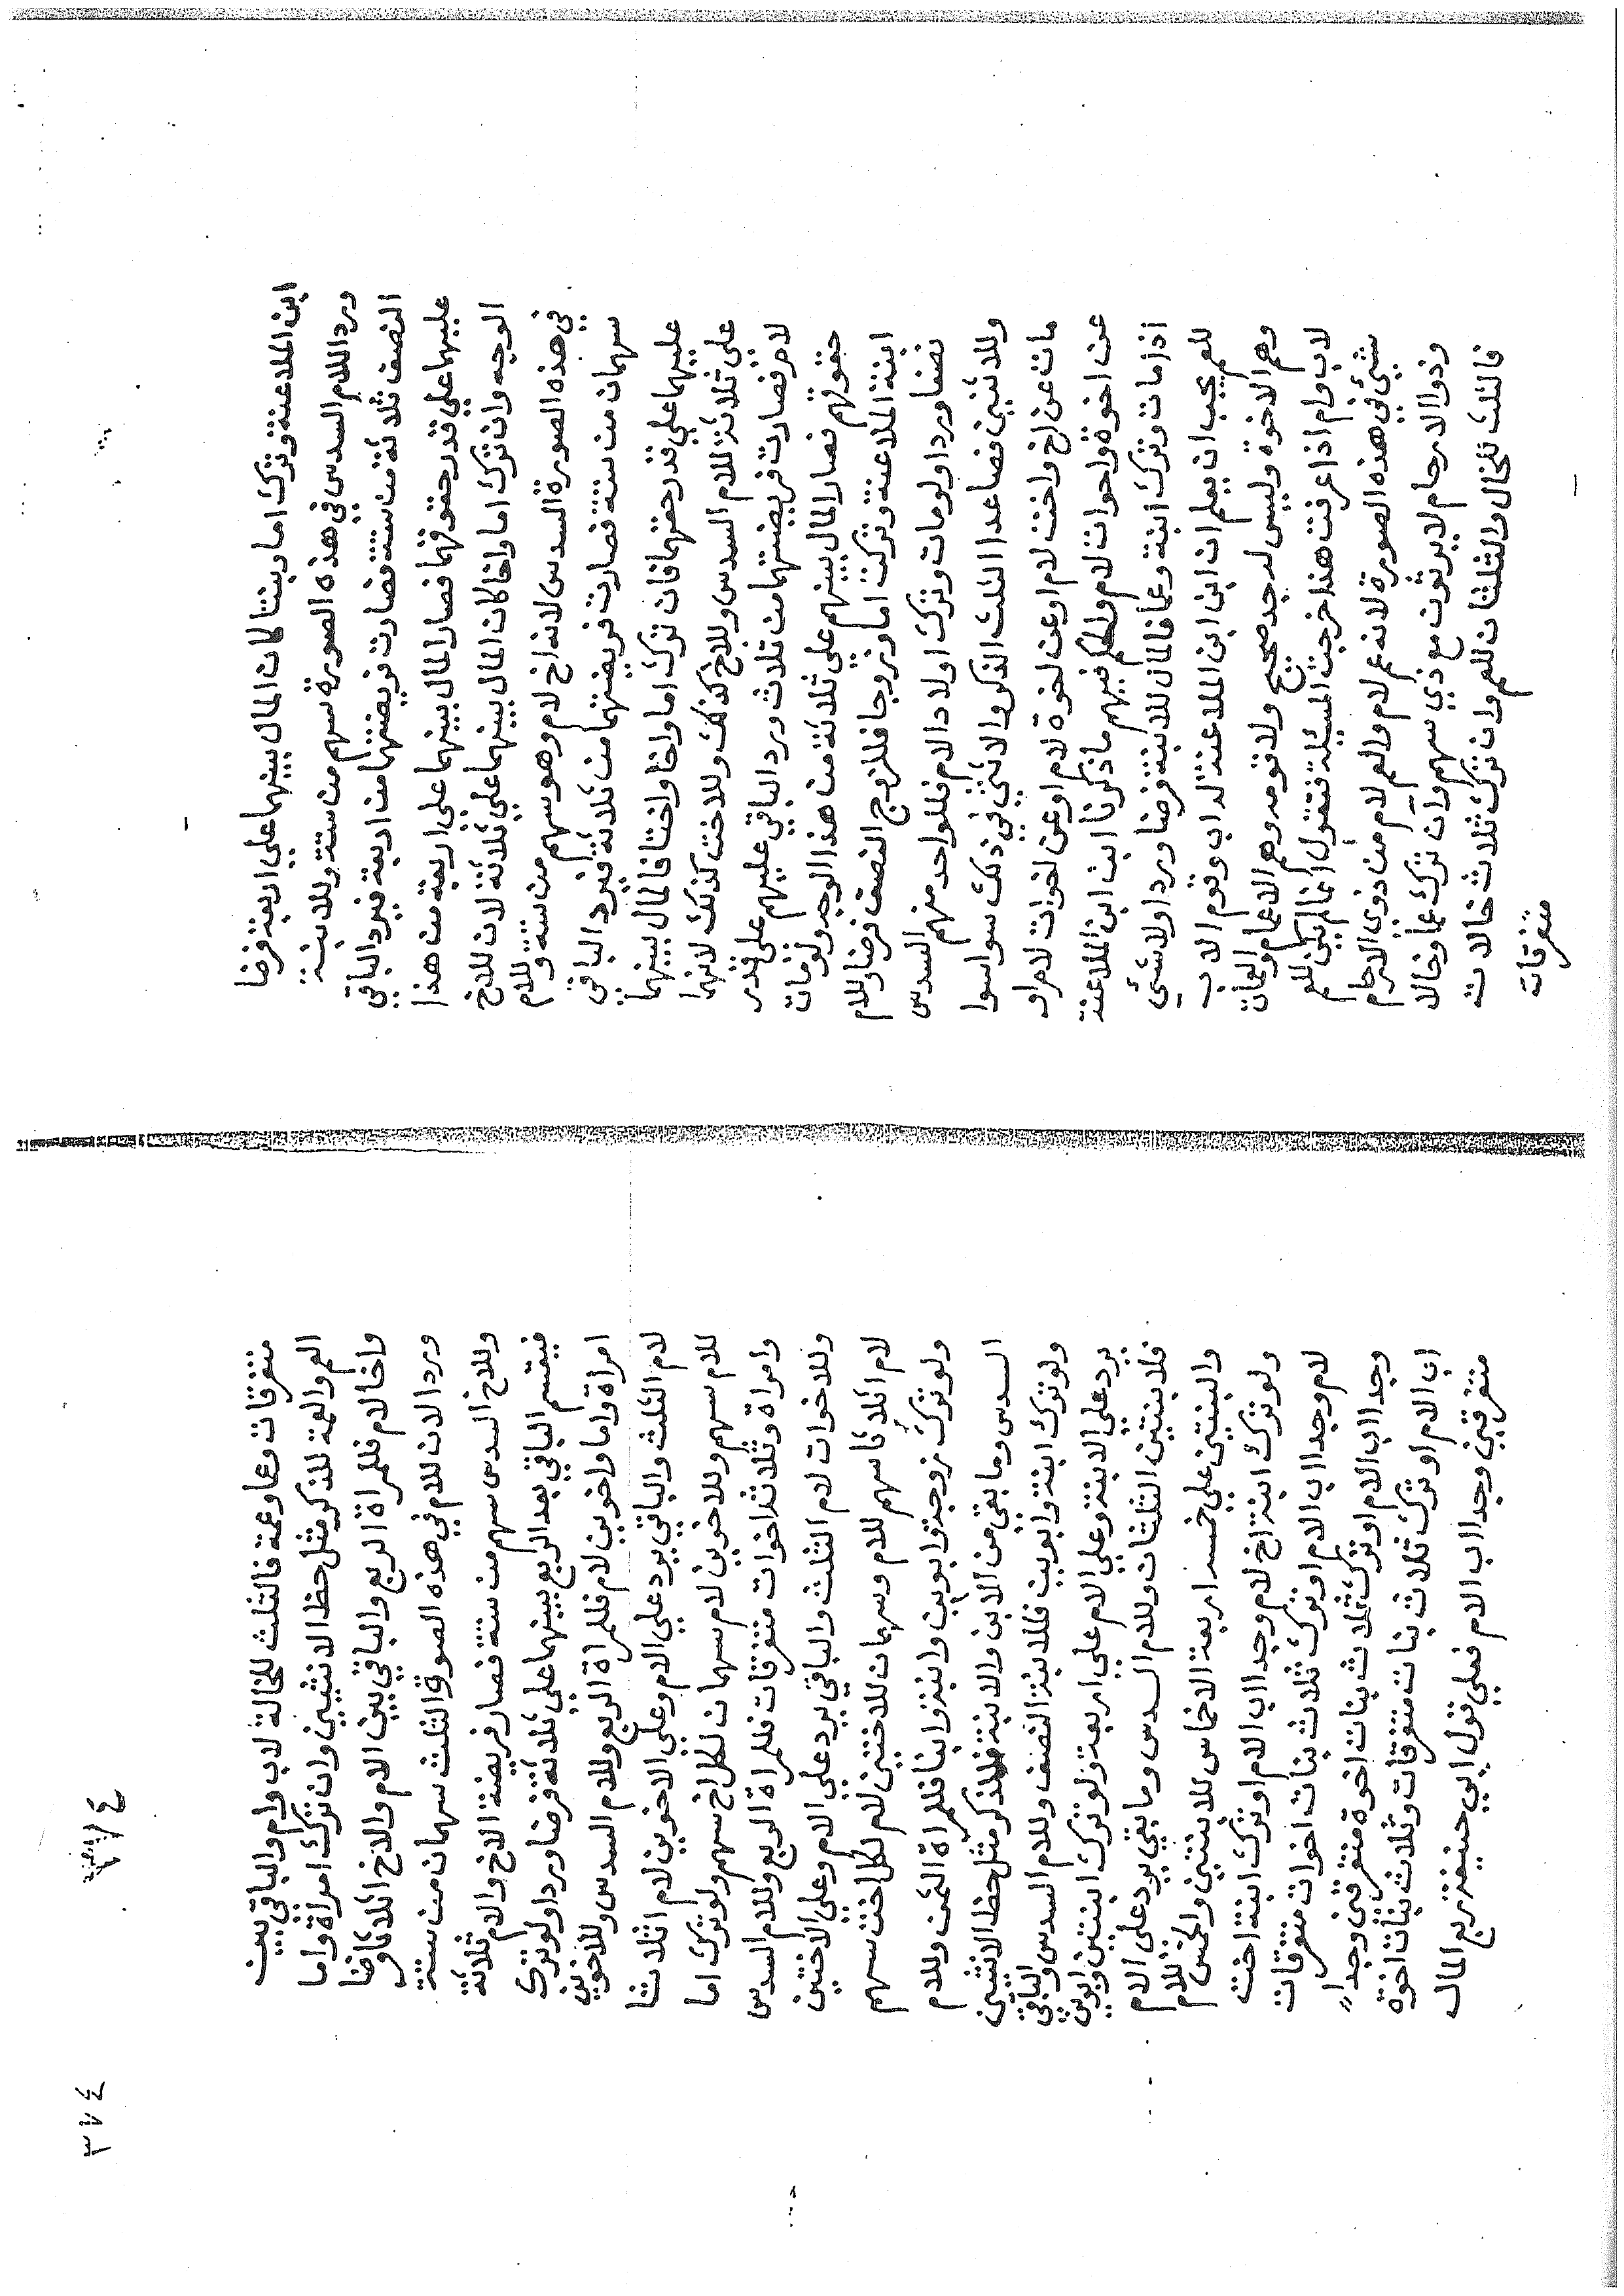 ابن الملاعنة وترك اما وبنتا كان المال بينهما علي اربعة فرضا
وردا للام السدس في هذه الصورة سهم من ستة وللابنة
النصف ثلاثة من ستة فصارت فريضتهما من اربعة فيرد الباقي
عليهما علي قدر حقوقهما فصار المال بينهما على اربعة من هذا
الوجه وان ترك اما واخا كان المال بينهما علي ثلاثة لان للاخ
في هذه الصورة السدس لانه اخ لام وهو سهم من ستة وللام
سهمان من ستة فصارت فريضتهما من ثلاثة فيرد الباقي
عليهما علي قدر حقهما فان ترك اما واخا واختا فالمال بينهما
على ثلاثة للام السدس وللاخ كذلك وللاخت كذلك لانهما
لام فصارت فريضتهما من ثلاث ويرد الباقي عليهم على قدر
حقوقهم فصار المال بينهم على ثلاثة من هذا الوجه ولو مات
ابنة الملاعنة وتركت اما وزوجا فللزوج النصف فرضا وللام
نصفا وردا ولو مات وترك اولاد الام فللواحد منهم السدس
وللاثنين فصاعدا الثلث الذكر والانثي في ذلك سوا سوا
مات عن اخ واخت لام او عن اخوة لام او عن اخوات لام او
عن اخوة واخوات لام والحكم فيهم ما ذكرنا ابن ابن الملاعنة
اذا مات وترك ابنة وعما فالمال للابنة فرضا وردا ولا شئ
للعم يجب ان يعلم ان ابن ابن الملاعنة له اب وقوم الاب
وهم الاخوة وليس له جد صحيح ولا قومه وهم الاعمام والعمات
لاب وام اذا عرفت هذا خرجت المسئلة فنقول انما لم يكن للعم
شئ في هذه الصورة لانه عم لام والعم لام من ذوي الارحام
وذوا الارحام لا يرثون مع ذي سهم وان ترك عما وخالا
فالثلث للخال والثلثان للعم وان ترك ثلاث خالات
متفرقات
متفرقات وعما وعمة فالثلث للخالة لاب وام والباقي بين
العم والعمة للذكر مثل حظ الانثيين وان ترك امراة واما
واخا لام فللمراة الربع والباقي بين الام والاخ اثلاثا فرضا
وردا لان للام في هذه الصورة الثلث سهمان من ستة
وللاخ السدس سهم من ستة فصار فريضة الاخ والام ثلاثة
فيقسم الباقي بعد الربع بينهما علي ثلاثة فرضا وردا ولو ترك
امراة واما واخوين لام فللمراة الربع وللام السدس وللاخوين
لام الثلث والباقي يرد علي الام وعلي الاخوين لام اثلاثا
للام سهم وللاخوين لام سهمان لكل اخ سهم ولو ترك اما
وامراة وثلاث اخوات متفرقات فللمراة الربع وللام السدس
وللاخوات لام الثلث والباقي يرد علي الام وعلى الاختين
لام اثلاثا سهم للام وسهمان للاختين لام لكل اخت سهم
ولو ترك زوجة وابوين وابنة وابنا فللمراة الثمن وللام
السدس وما بقي من الابن والابنة للذكر مثل حظ الانثيين
ولو ترك ابنة وابوين فللابنة النصف وللام السدس والباقي
يرد علي الابنة وعلي الام علي اربعة ولو ترك ابنتين وابوين
فللابنتين الثلثان وللام السدس وما بقي يرد على الام
والبنتين علي خمسة اربعة الاخماس للابنتين والخمس للام
ولو ترك ابنة اخ لام وجدا اب الام او ترك ابنة اخت
لام وجدا اب الام او ترك ثلاث بنات اخوات متفرقات
وجدا اب الام او ترك ثلاث بنات اخوة متفرقين وجدا
اب الام او ترك ثلاث بنات متفرقات وثلاث بنات اخوة
متفرقين وجدا اب الام فعلي قول ابي حنيفة ربع المال
٣٧٤